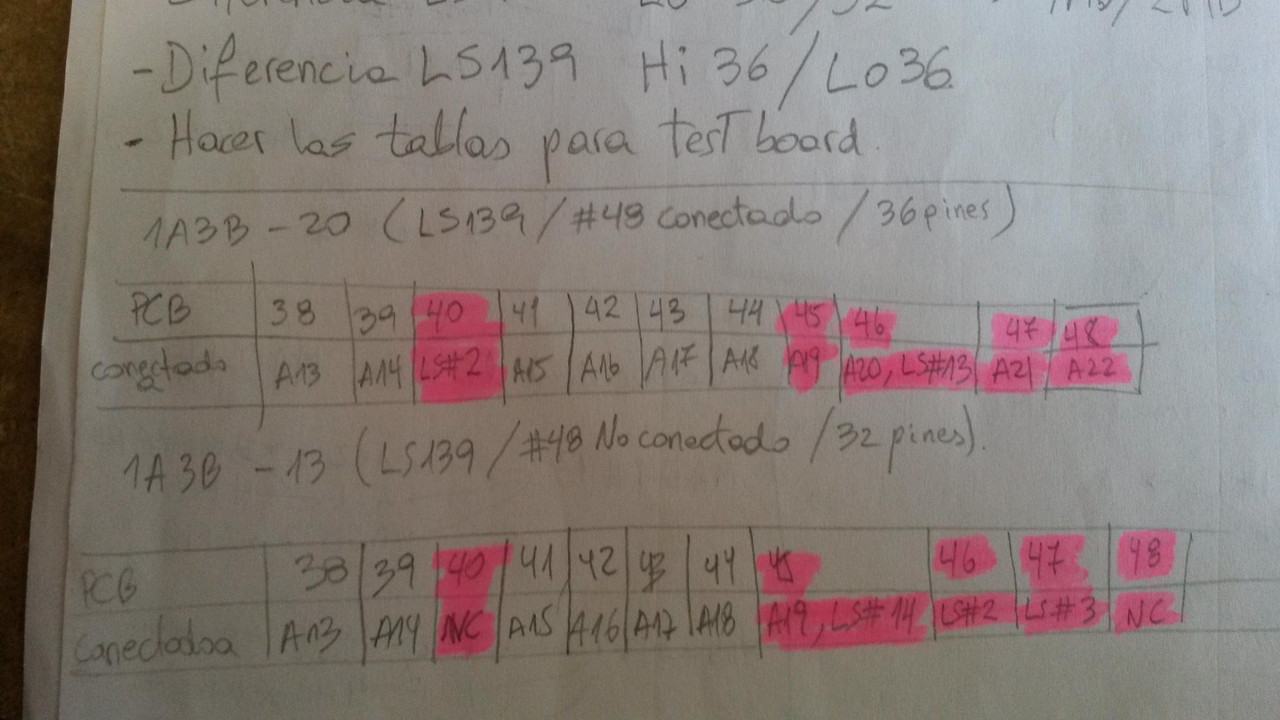 - Diferencia LS139 Hi 36/Lo36
- Hacer las tablas para test board.
1A3B - 20 (LS139 / #48 conectado / 36 pines)
PCB 38 39 40 41 42 43 44 45 46 47 48
conectado a A13 A14 LS#2 A15 A16 A17 A18 A19 A20, LS#13 A21 A22
1A3B - 13 (LS139 / #48 No conectado / 32 pines).
PCB 38 39 40 41 42 43 44 45 46 47 48
conectado a A13 A14 NC A15 A16 A17 A18 A19, LS#14 LS#2 LS#3 NC